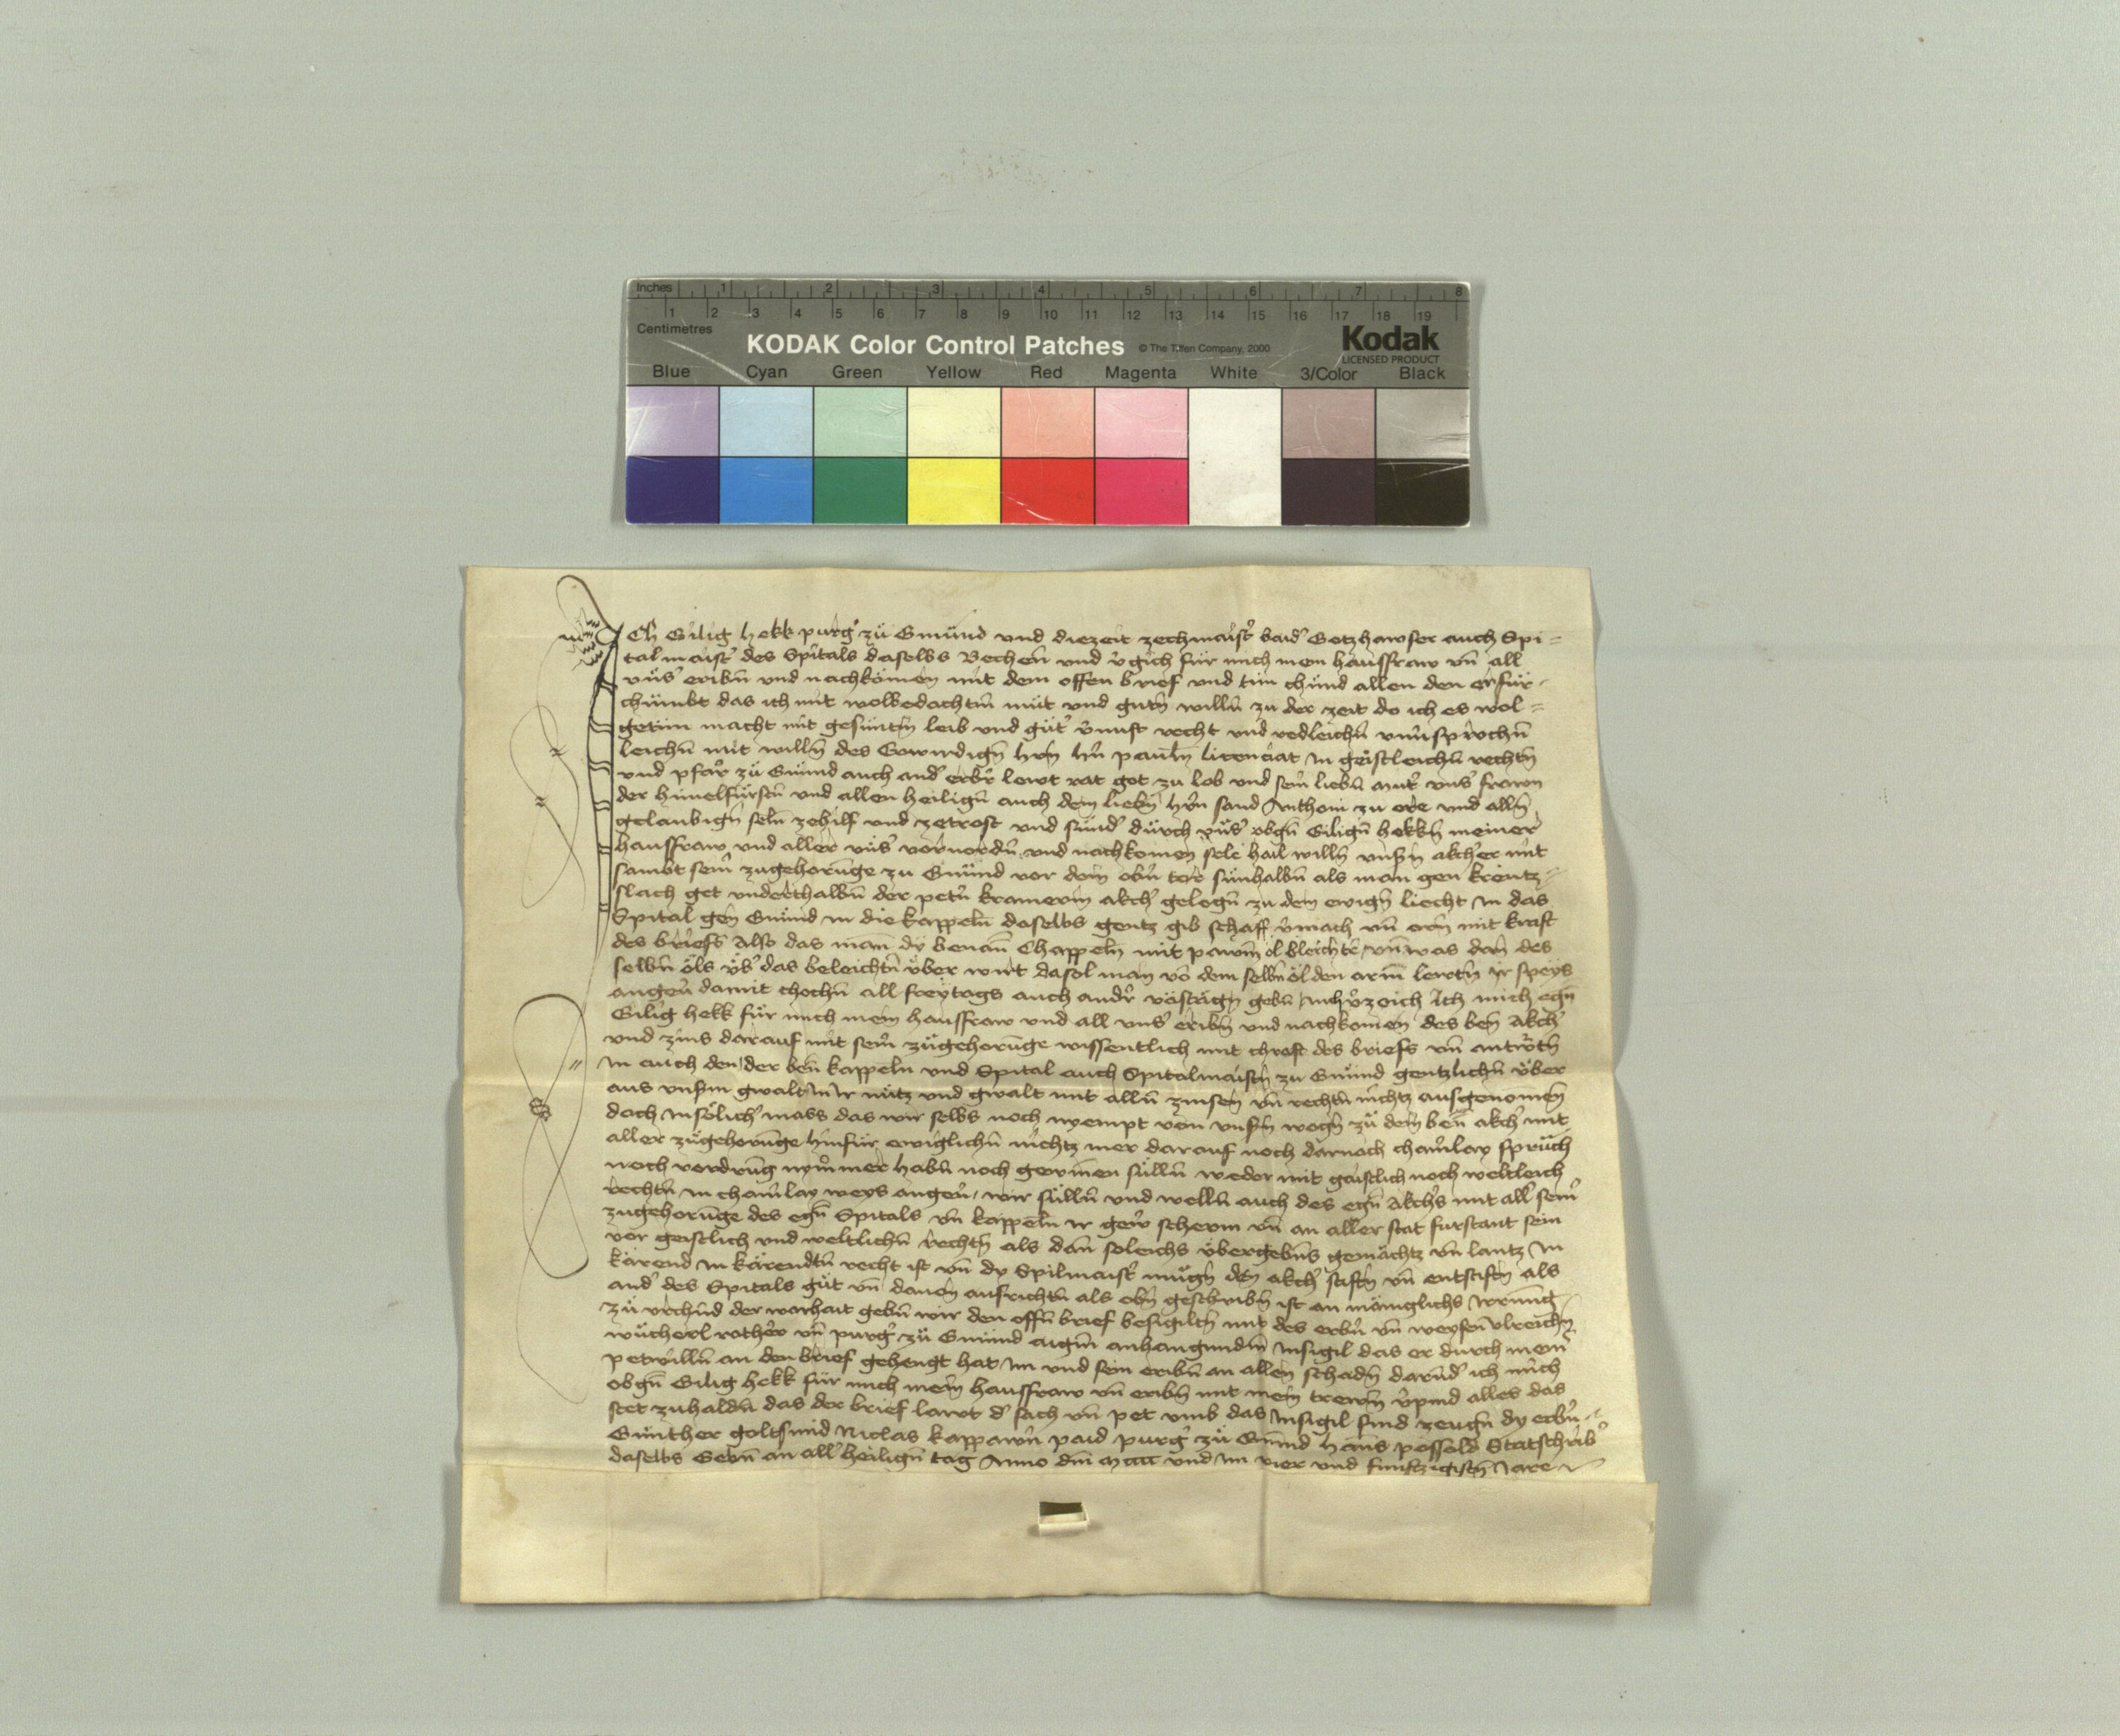 Inches 1 2 3 4 5 6 7 8
1 2 3 4 5 6 7 8 9 10 11 12 13 14 15 16 17 18 19
Centimetres
KODAK Color Control Patches © The Tiffen Company, 2000 Kodak
LICENSED PRODUCT
Blue Cyan Green Yellow Red Magenta White 3/Color Black
Ich Gilig hekk purg' zů Gmünd und diezeit zechmaist' baid' Gotzhawser auch Spi=
talmaist' des Spitals daselbs Vechen̄ und v'gich für mich mein hausfraw vn̄ all
vns' eribn̄ und nachkömen mit dem offen brief und tůn chünd allen den er für=
chümbt das ich mit wolbedachtm̄ můt und gutn̄ willn̄ zu der zeit do ich es wol=
getůn macht mit gesüntn̄ leib und gůt' v'nuft recht und redleichn̄ vnu'sprochn̄
leichn̄ mit willn̄ des Erwirdign̄ hrn̄ hn̄ pauln̄ licenciat in geistleichn̄ rechtn̄
und pfar' zů Gmünd auch and' erbr' lewt rat got zu lob und sein' liebn̄ mut' vns' frawn
der himelfürstn̄ und allen heilign̄ auch dem liebn̄ hr'n sand Anthoni zu ere und alln̄
gelaubign̄ seln̄ zehilf und zetrost und sünd' durch vns' obgn̄ Gilign̄ hekkn̄ meiner
hausfraw und aller vns' vornordn̄ und nachkomen sele hail willn̄ vnsn̄ akcher mit
sambt sein' zugehorunge zu Gmünd vor dem obn̄ tor sünhalbn̄ als man gen krentz=
slach get underthalbn̄ der petn̄ kramerin akch' gelegn̄ zu dem ewign̄ liecht in das
Spital gen Gmünd in die kappeln̄ daselbs gentz gib schaff v'mach vn̄ own̄ mit kraft
des briefs Also das man dy benan̄ Chappeln mit pawm̄ öl bleichte vn̄ was dan̄ des
selbn̄ öls üb' das beleichtn̄ über wirt dasol man vō dem selbn̄ öl den arm̄ lewtn̄ ir speys
angen̄ damit chochn̄ all freytags auch andr' vasttägn̄ gebn̄ Auch v'zeich Ich mich egn̄
Gilig hekk für mich mein hausfraw und all vns' eribn̄ und nachkomen des ben̄ Akch'
und zins darauf mit sein' zůgehorunge wissentlich mit chraft des briefs vn̄ antw'tn̄
in auch den der ben̄ kappeln und Spital auch Spitalmaistn̄ zu Gmünd gentzlichn̄ über
aus vnsm̄ gwalt in ir nutz und gwalt mit alln̄ zinsen vn̄ rechtn̄ nichtz ausgenomen
doch insölich' mass das wir selbs noch nyempt von vnsn̄ wegn̄ zů dem ben̄ akch' mit
aller zůgehorunge hinfür ewiglichn̄ nichtz mer darauf noch darnach cham'lay sprüch
noch vordrūg nym'mer habn̄ noch gewinnen sülln̄ weder mit geistlich noch weltleich
rechtn̄ in cham'lay weys angen̄ wir sülln̄ und welln̄ auch des egn̄ Akch's mit all' sein'
zugehorūge des egn̄ Spitals vn̄ kappeln ir gew' scherm vn̄ an aller stat furstant sein
vor geistlich und weltlichn̄ rechtn̄ als dan̄ soleichs übergebns gemächtz vn̄ lantz in
kärend in kärendtn̄ recht ist vn̄ dy Spitlmaist' mügn̄ den akch' stiftn̄ vn̄ entstiftn̄ als
and' des Spitals gůt vn̄ dauon ausrichtn̄ als obn̄ geschribn̄ ist an mänigklichs irrung
zů vrchund der warhait gebn̄ wir den offn̄ brief besigiltn̄ mit des erbn̄ vn̄ weysen vlreichn̄
wůcherl rathe'r vn̄ purg' zů Gmünd aigm̄ anhangundm̄ Insigil das er durch mein'
petwilln̄ an den brief gehengt hat im und sein eribn̄ an allen schadn̄ darūd' ich mich
obgn̄ Gilig hekk für mich mein hausfraw vn̄ eribn̄ mit mein trewn̄ v'pind alles das
stet zuhaldn̄ das der brief lawt d' sach vn̄ pet vmb das Insigil sind zeugn̄ dy erbn̄
Günther goltsmid Niclas kappawn̄ paid purg' zů Gmünd hanns possold Statschrib'
daselbs Gebn̄ an all' heilign̄ tag Anno dm̄ mcccc und im vier und funftzigistn̄ Jare